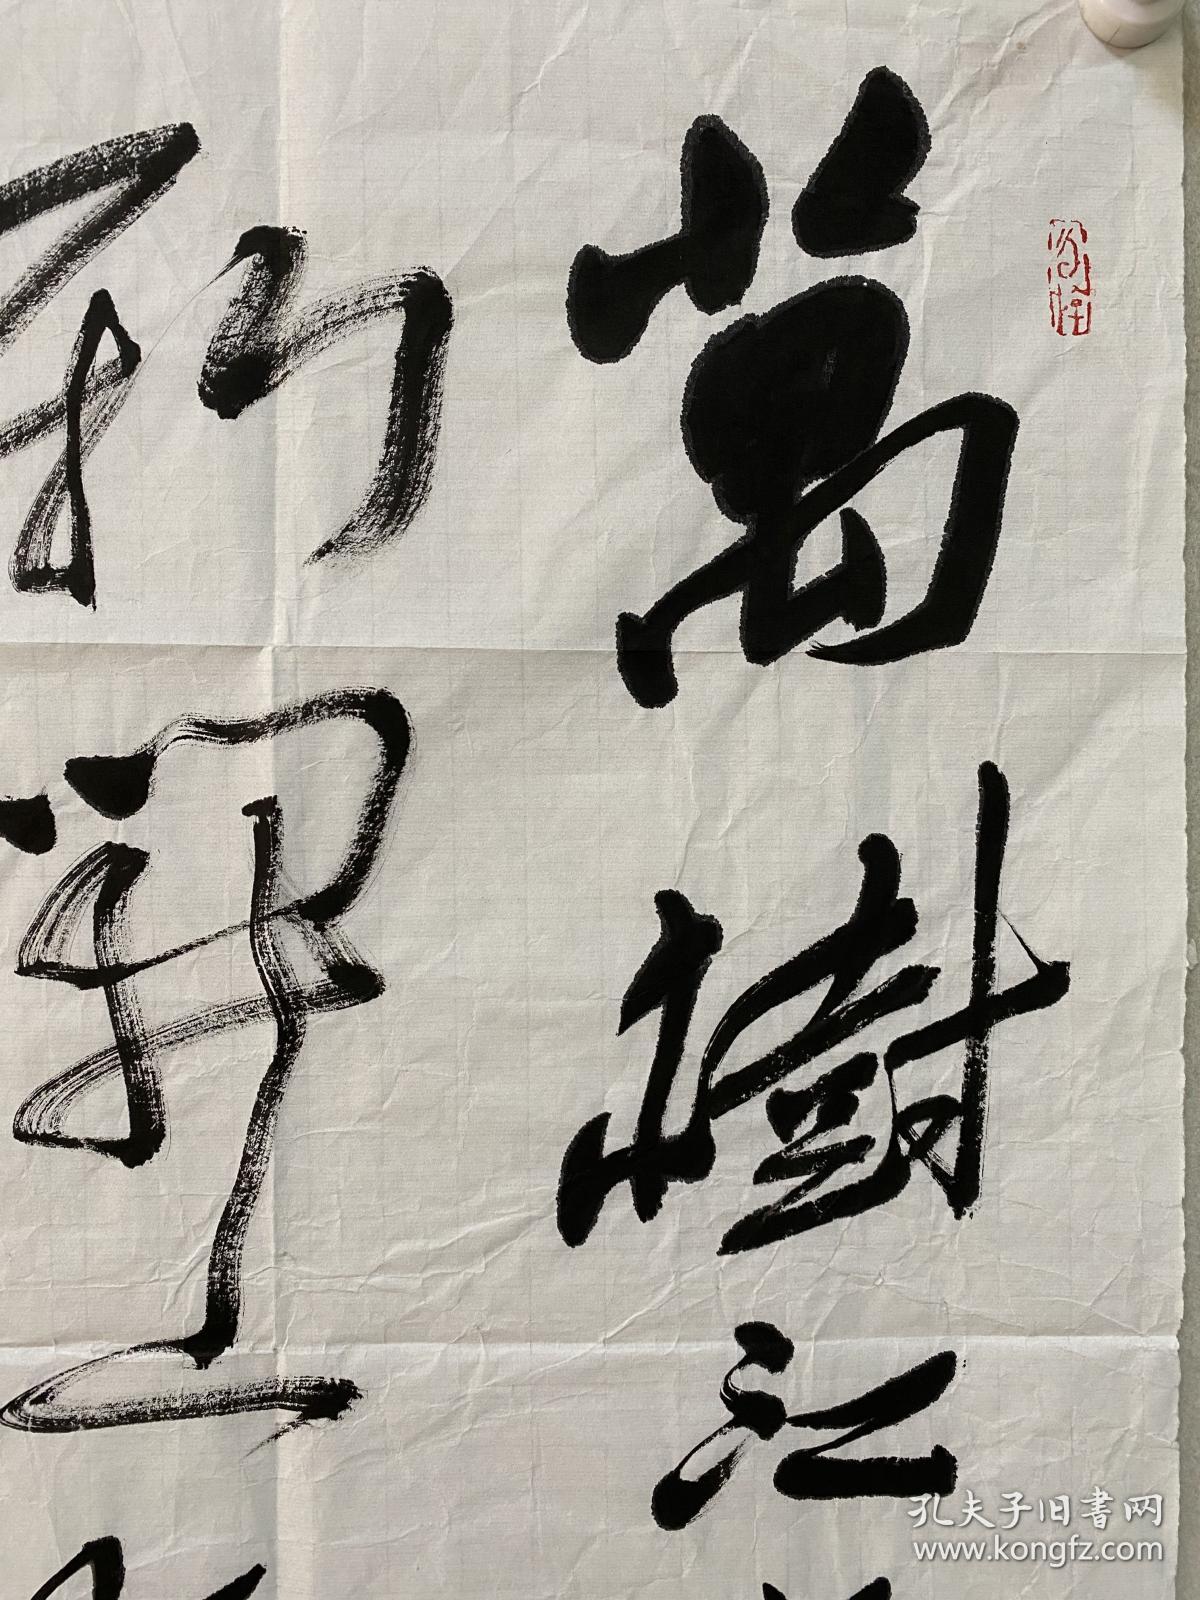 萬樹江
新開一
孔夫子旧书网
www.kongfz.com